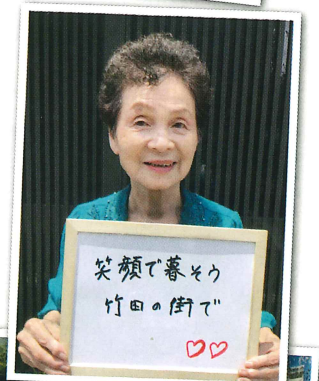 笑顔で暮そう
竹田の街で